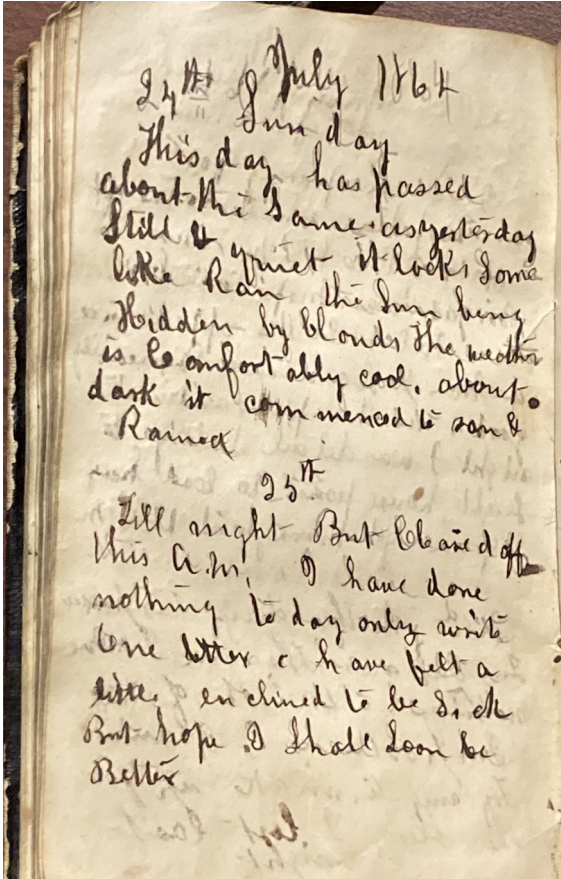 July 1864
24th Sunday
This day has passed
about the Same as yesterday
Still & quiet it looks Some
like Rain the Sun being
Hidden by Clouds The weather
is Comfortably cool. about
dark it commenced to rain &
Rained
25th
Till night But Cleared off
this A.M. I have done
nothing to day only write
One letter & have felt a
little enclined to be Sick
But hope I Shall Soon be
Better